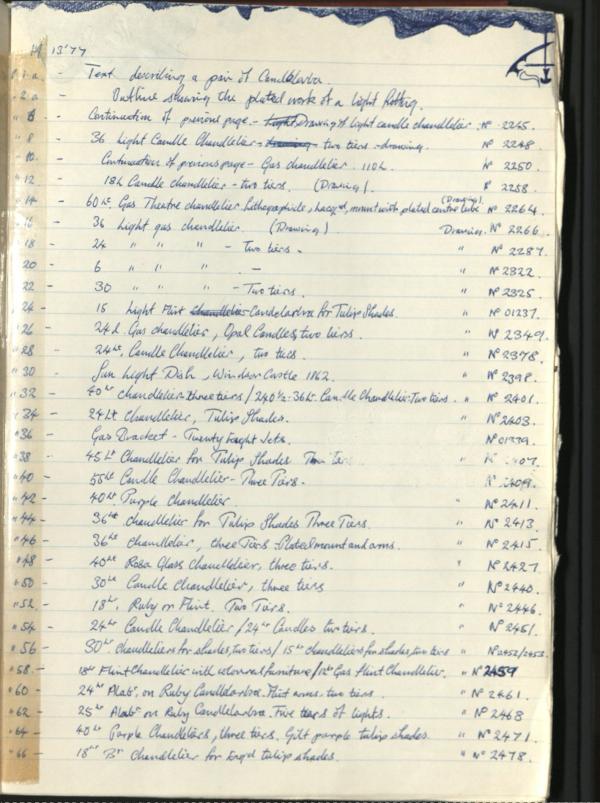 13'77
1a - Text describing a pair of Candelabra.
" 2a - Outline showing the plated work of a light fitting.
" 6 - Continuation of previous page - Light Drawing of light candle chandelier. Nº 2245.
" 8 - 36 Light Candle Chandelier - Drawing - two tiers - drawing. Nº 2248
" 10. - Continuation of previous page - Gas chandelier. 110 lt. Nº 2250
" 12 - 18 lt Candle chandelier - two tiers. (Drawing). Nº 2258.
" 14 - 60 lt. Gas Theatre chandelier mount with plated centre tube (Drawing) Nº 2264
" 16 - 36 Light gas chandelier. (Drawing) Drawing. Nº 2266.
" 18 - 24 " " " - Two tiers. " Nº 2287.
" 20 - 6 " " " - " Nº 2322.
" 22 - 30 " " " - Two tiers. " Nº 2325.
" 24 - 15 Light Flint Chandelier Candelabra for Tulip Shades. " Nº 01237.
" 26 - 24 lt. Gas chandelier, Opal Candles, two tiers. " Nº 2349.
" 28 - 24 lt. Candle Chandelier, two tiers. " Nº 2378.
" 30 - Sun Light Dish, Windsor Castle 1862. " Nº 2398.
" 32 - 40 lt chandelier three tiers / 36 lt. Candle Chandelier. Two tiers. " Nº 2401.
" 34 - 24 Lt Chandelier, Tulip Shades. " Nº 2403.
" 36 - Gas Bracket - Twenty Eight Jets. Nº
" 38 - 45 Lt Chandelier for Tulip Shades Nº 2407.
" 40 - 55 Lt Candle Chandelier - Three Tiers. Nº 2409.
" 42 - 40 Lt Purple Chandelier " Nº 2411.
" 44 - 36 Lt. chandelier for Tulip Shades Three Tiers. " Nº 2413
" 46 - 36 Lt chandelier, three Tiers - Plated mount and arms. " Nº 2415.
" 48 - 40 Lt Rosa Glass chandelier, three tiers. " Nº 2427
" 50 - 30 Lt Candle Chandelier, three tiers " Nº 2440.
" 52. - 18 Lt, Ruby on Flint. Two Tiers. " Nº 2446.
" 54 - 24 Lt Candle Chandelier / 24 Lt Candles two tiers. " Nº 2451
" 56 - 30 Lt. chandeliers for shades, two tiers / 15 lt chandeliers for shades, two tiers " Nº 2452/2453.
" 58. - 18 Lt Flint Chandelier with coloured furniture / 12 lt Gas Flint Chandelier. " Nº 2459
" 60 - 24 Lt Alabr. on Ruby Candelabra. Flint arms. two tiers " Nº 2461.
" 62 - 25 Lt Alabr on Ruby Candelabra. Five tiers of lights. " Nº 2468
" 64 - 40 Lt Purple Chandeliers, three tiers, Gilt purple tulip shades. " Nº 2471.
" 66 - 18 Lt Br Chandelier for Engd tulip shades. " Nº 2478.